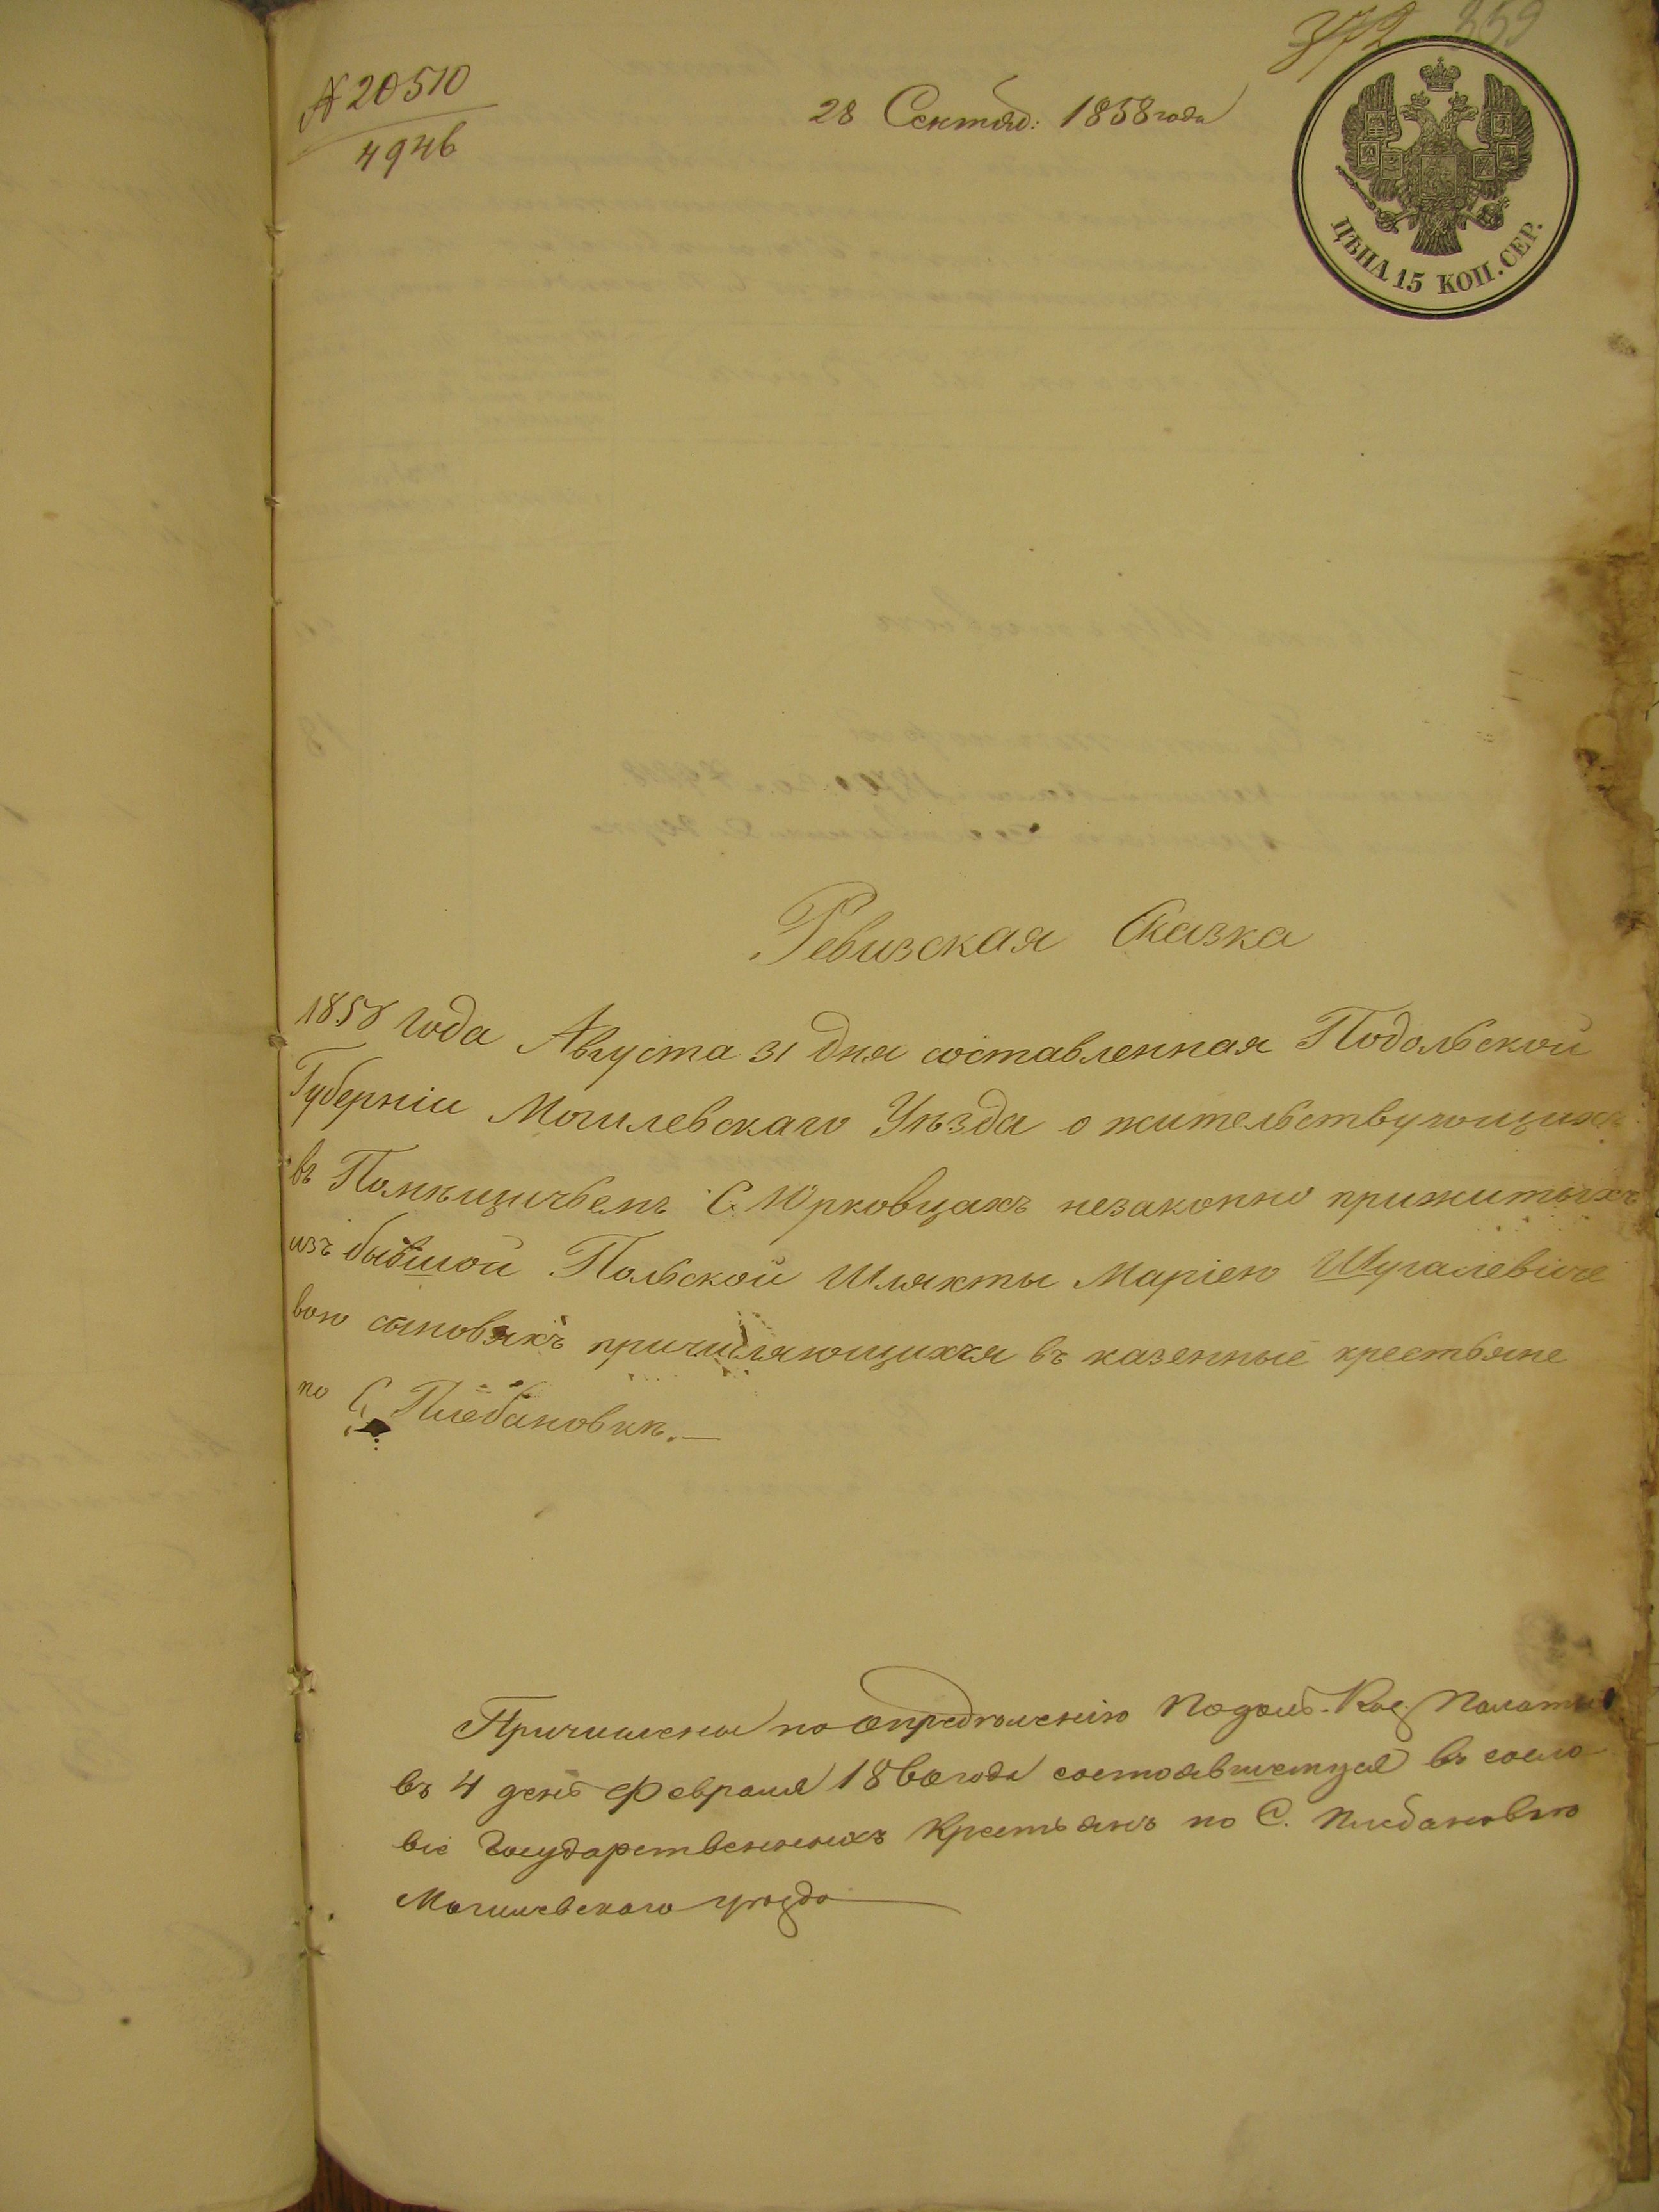 372 359
№ 20510
4946
28 Сентяб: 1858 года
ЦѢНА 15 КОП. СЕР.
Ревизская Сказка
1858 года Августа 31 дня составленная Подольской
Губерніи Могилевскаго Уѣзда о жительствующихъ
въ Помѣщичьемъ С. Юрковцахъ незаконно прижитыхъ
изъ бывшой Польской Шляхты Маріею Шугалевиче
вою сыновяхъ причисляющихся въ казенные крестьяне
по С. Плебановкѣ.—
Причислены по опредѣленію Подольс. Каз. Палаты
въ 4 день Февраля 1860 года состоявшемуся въ сосло
віе Государственныхъ Крестьянъ по С. Плебановкѣ
Могилевскаго уѣзда